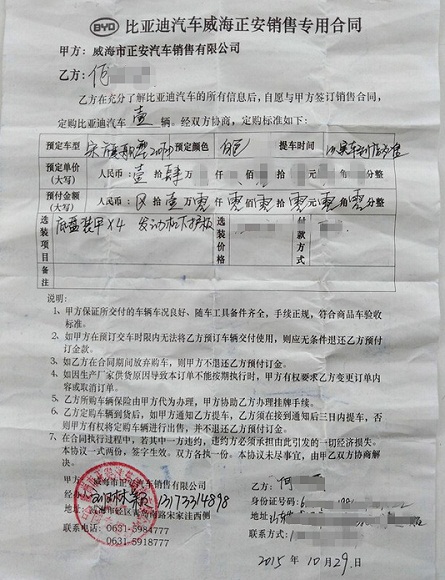 BYD 比亚迪汽车威海正安销售专用合同
甲方：威海市正安汽车销售有限公司
乙方：何
乙方在充分了解比亚迪汽车的所有信息后，自愿与甲方签订销售合同，
定购比亚迪汽车 壹 辆。经双方协商，定购标准如下：
预定车型 宋 旗舰型 预定颜色 白色 提车时间
预定单价（大写） 人民币：壹拾肆万 仟 佰 拾 元 角 分整
预付金额（大写） 人民币：区拾壹万零仟零佰零拾零元零角零分整
选装项目 底盘装甲X4 发动机下护板 选装价格 付款方式
备注
说明：
1、甲方保证所交付的车辆车况良好、随车工具备件齐全，手续正规，符合商品车验收
标准。
2、如甲方在预订交车时限内无法将乙方预订车辆交付使用，则应无条件退还乙方预付
订金款。
3、如乙方在合同期间放弃购车，则甲方不退还乙方预付订金。
4、如因生产厂家供货原因导致本订单不能按期执行时，甲方有权要求乙方变更订单内
容或取消订单。
5、乙方所购车辆保险由甲方代为办理，甲方协助乙方办理挂牌手续。
6、乙方定购车辆到货后，如甲方通知乙方提车，乙方须在接到通知后三日内提车，否
则甲方有权将定购车辆进行出售，并不退还乙方预付订金。
7、在合同执行过程中，若其中一方违约，违约方必须承担由此引发的一切经济损失。
本协议一式两份，签字生效。双方各执一份。本协议未尽事宜，由甲乙双方协商解
决。
甲方：威海市正安汽车销售有限公司
经办人： 13173314898
地址：威海市经区青岛南路宋家洼西侧
联系电话：0631-5984777
0631-5918777
乙方：何
身份证号码：
地址：山东
联系方式：
2015年10月29日